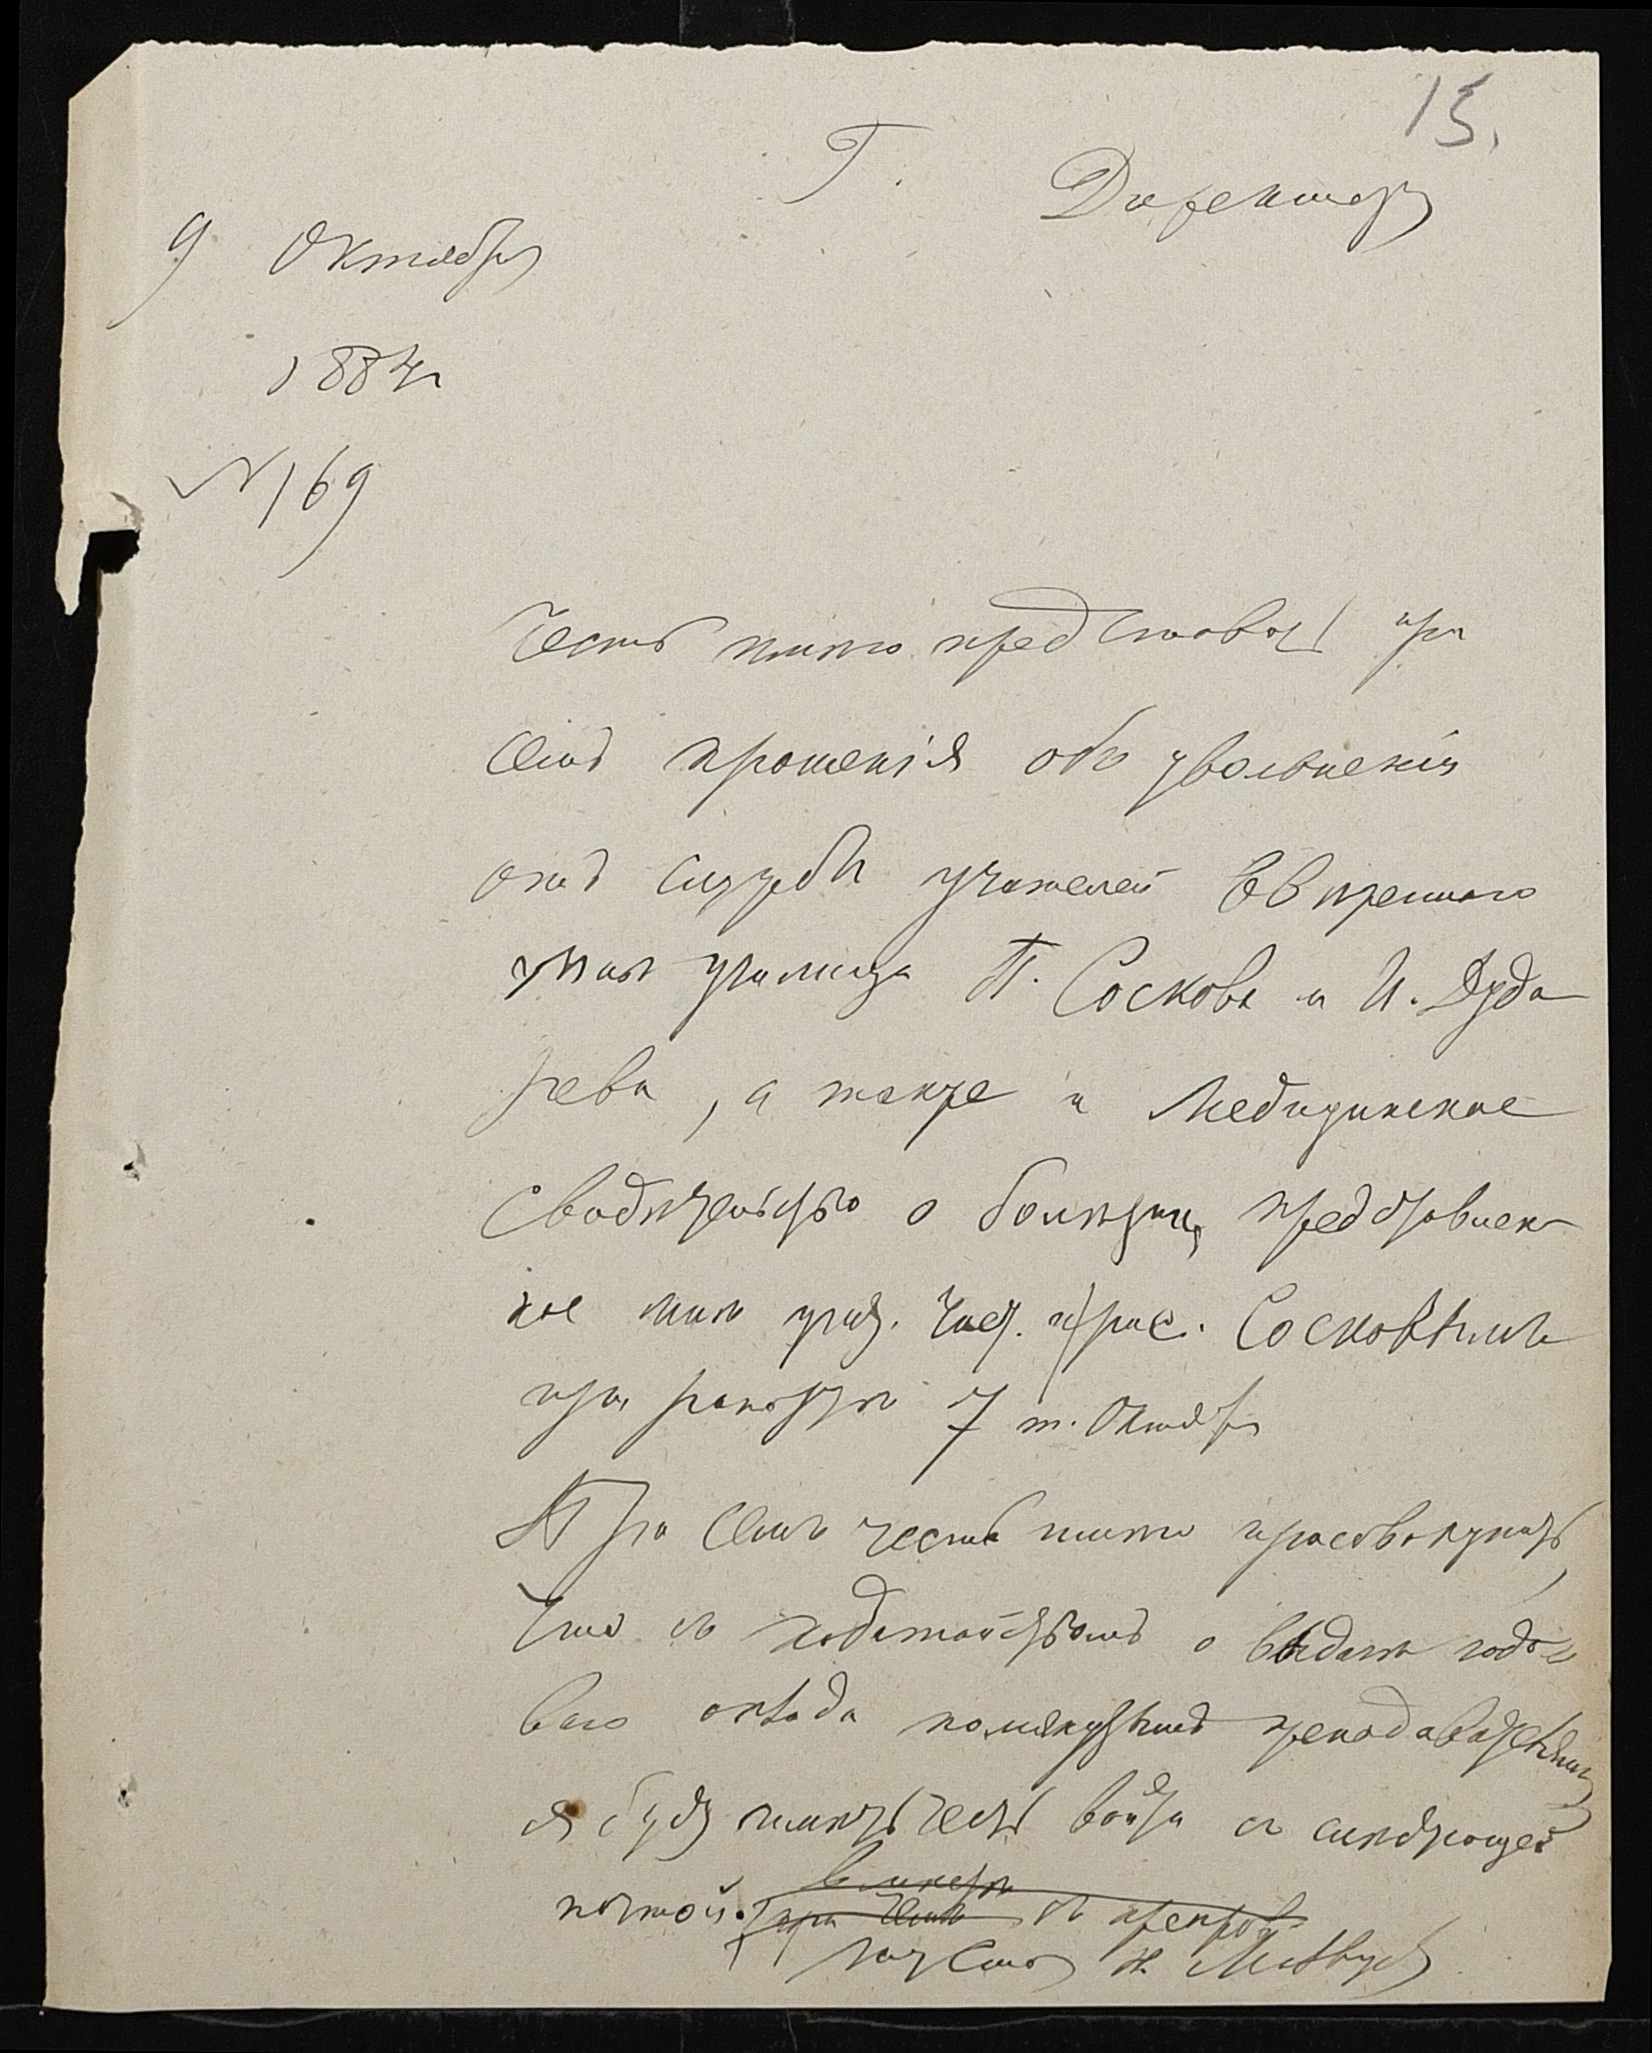 15.
Г. Директору
9 Октября
1884 г
№ 169
Честь имею представить при
семъ прошенія объ увольненіи
отъ службы учителей ввѣреннаго
мнѣ училища П. Соскова и И. Дуда
рева, а также и Медицинское
Свидѣтельство о болѣзни, представлен
ное мнѣ учит. Сосковымъ
при рапортѣ 7 т. Октября
При семъ честь имею присовокупить,
что съ ходатайствомъ о выдачѣ годо
ваго оклада помянутымъ преподавателямъ
я буду имѣть честь войти съ слѣдующей
почтой.
при семъ